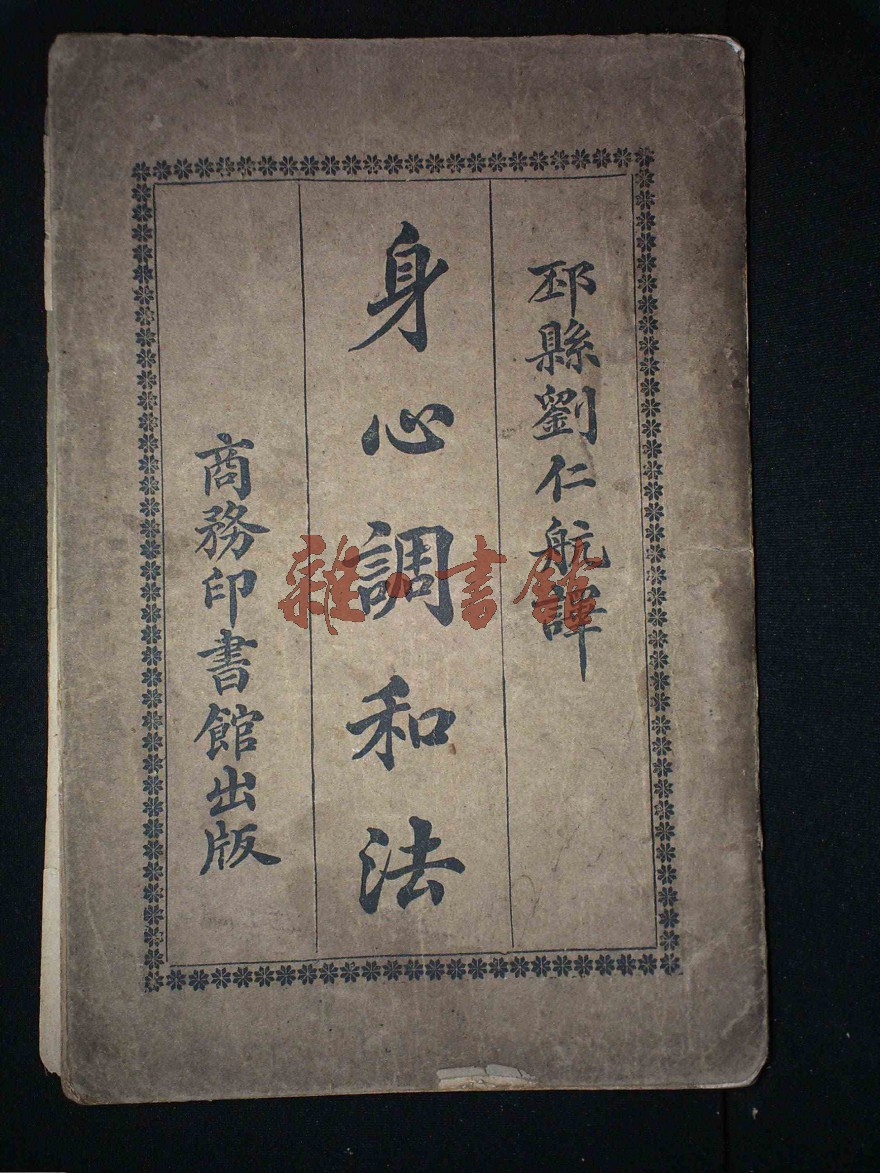 邳縣劉仁航譯
身心調和法
商務印書館出版
雜·書館